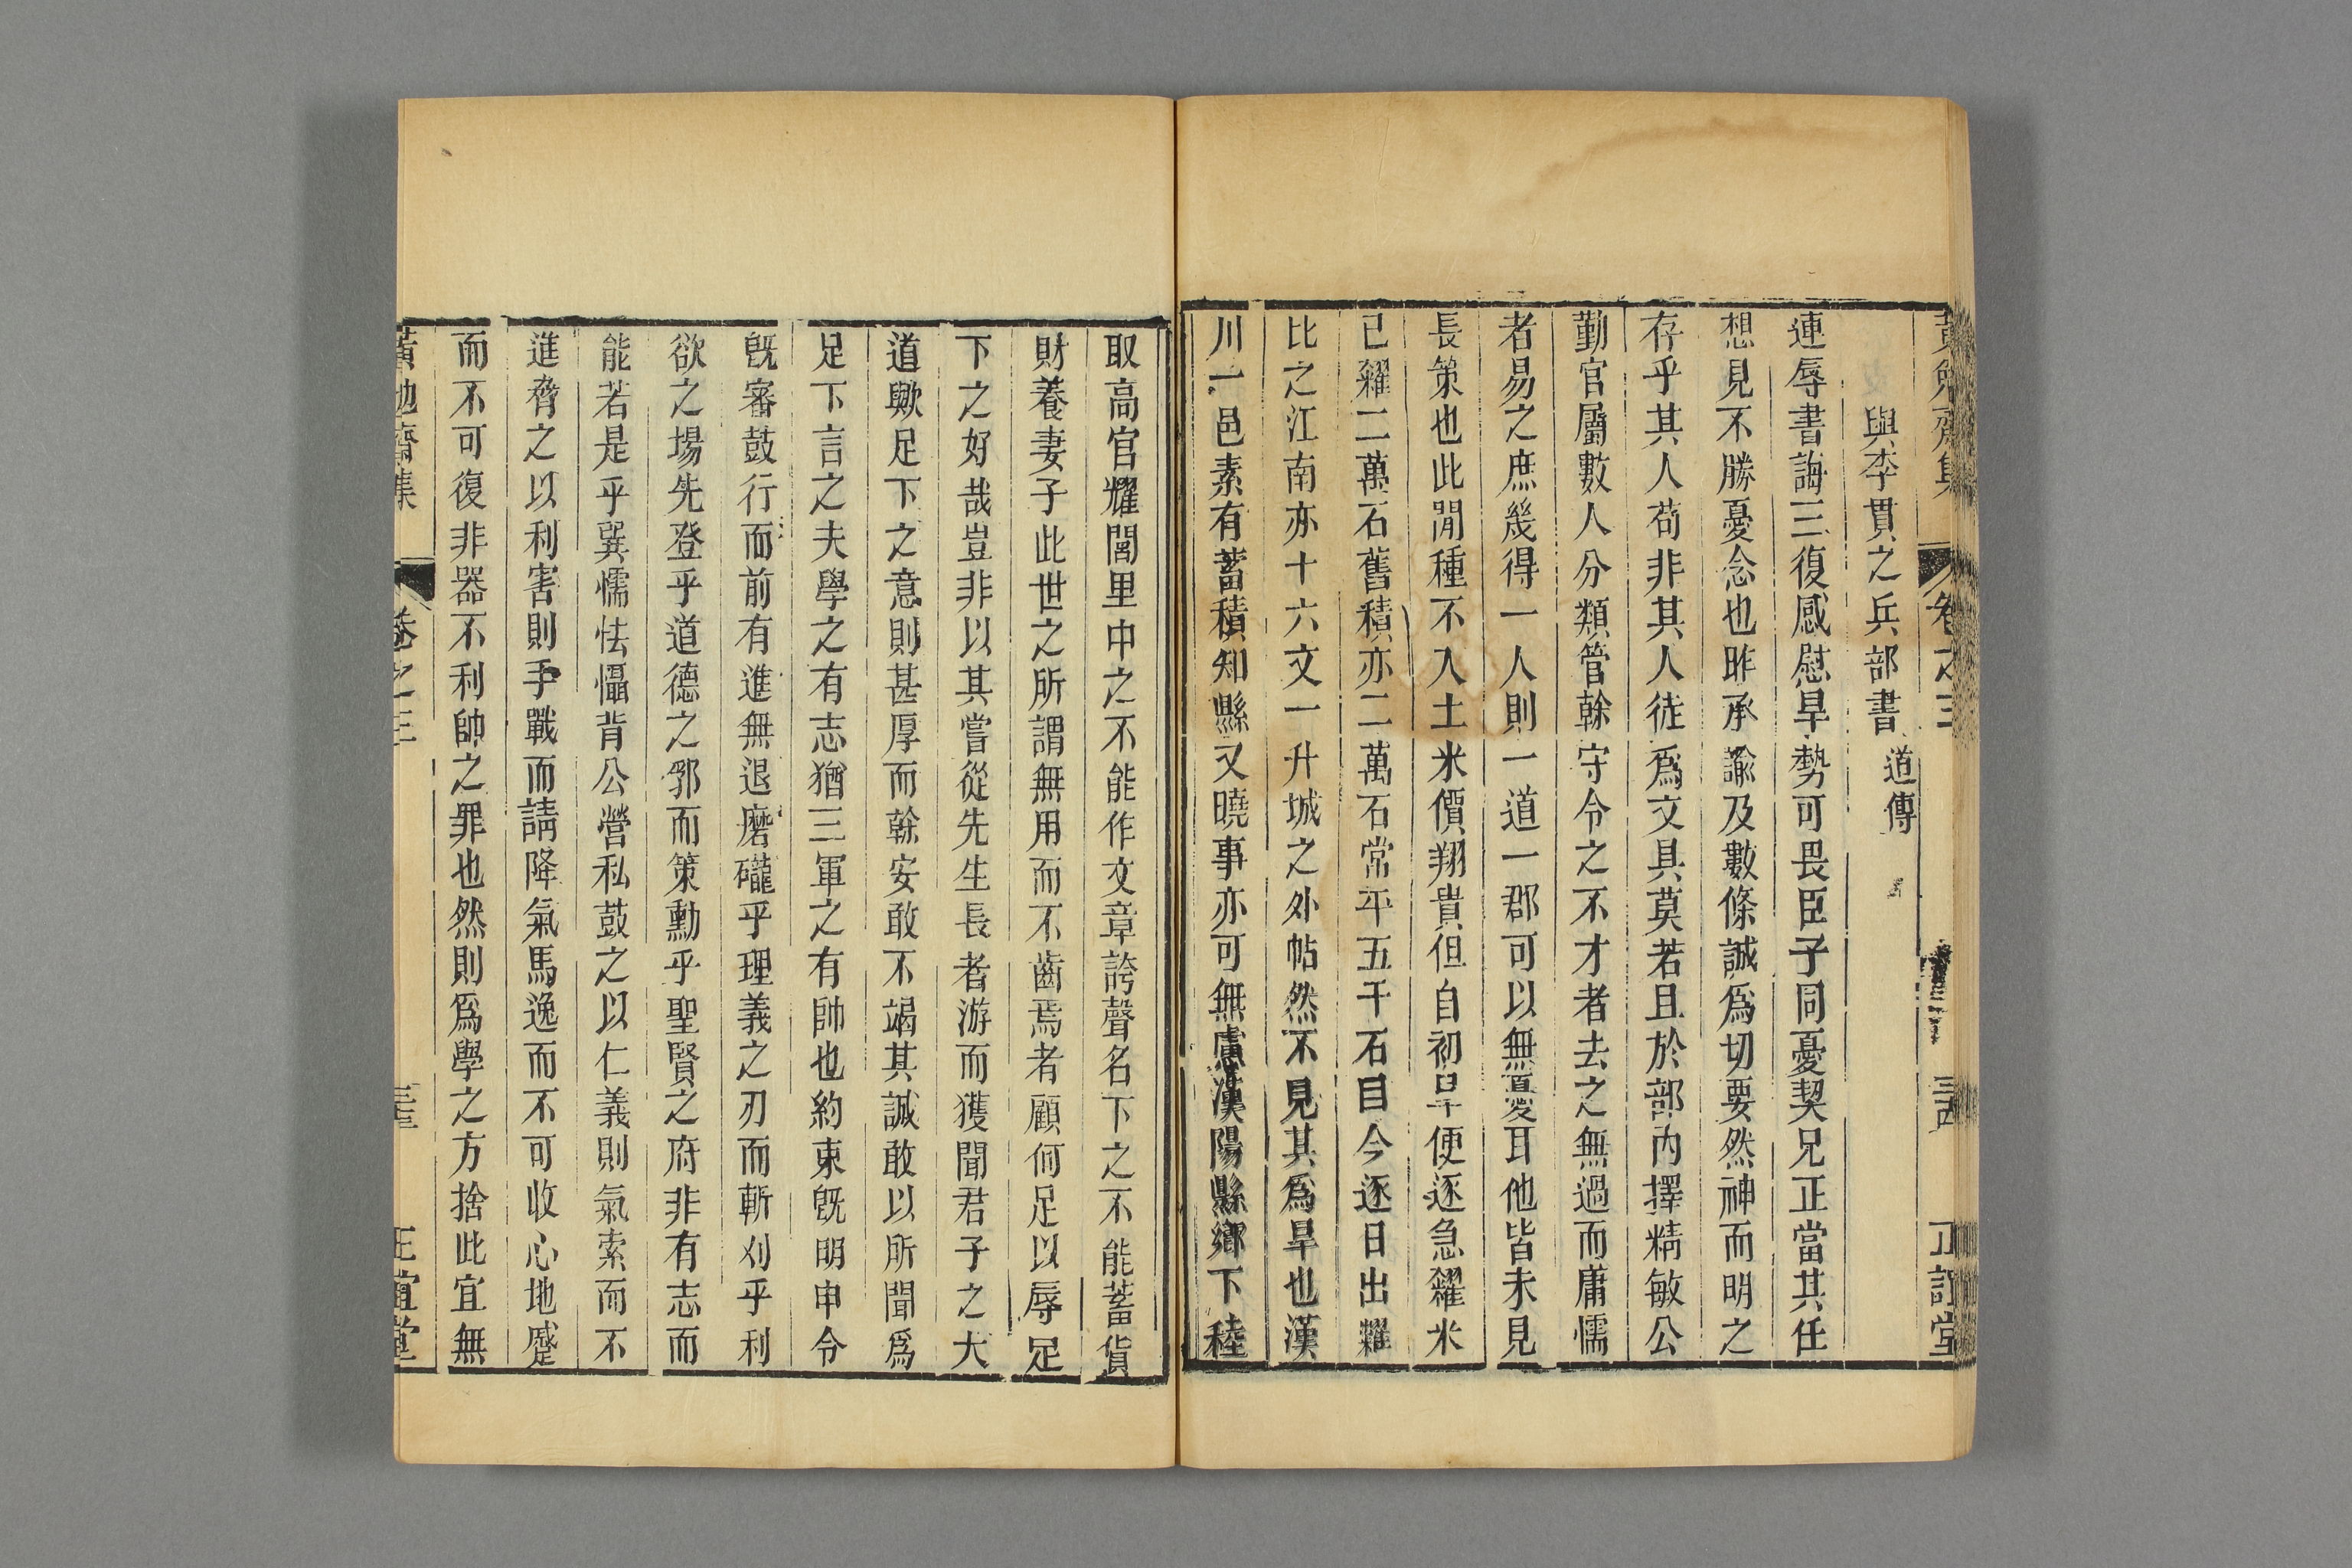 黃勉齋集 卷之三 三四 正誼堂
與李貫之兵部書 道傳
連辱書誨三復感慰旱勢可畏臣子同憂契兄正當其任
想見不勝憂念也昨承諭及數條誠爲切要然神而明之
存乎其人苟非其人徒爲文具莫若且於部內擇精敏公
勤官屬數人分類管榦守令之不才者去之無過而庸懦
者易之庶幾得一人則一道一郡可以無憂耳他皆未見
長策也此閒種不入土米價翔貴但自初旱便逐急糴米
已糴二萬石舊積亦二萬石常平五千石目今逐日出糶
比之江南亦十六文一升城之外帖然不見其爲旱也漢
川一邑素有蓄積知縣又曉事亦可無慮漢陽縣鄉下稑
取高官耀閭里中之不能作文章誇聲名下之不能蓄貨
財養妻子此世之所謂無用而不齒焉者顧何足以辱足
下之好哉豈非以其嘗從先生長者游而獲聞君子之大
道歟足下之意則甚厚而榦安敢不竭其誠敢以所聞爲
足下言之夫學之有志猶三軍之有帥也約束旣明申令
旣審鼓行而前有進無退磨礲乎理義之刃而斬刈乎利
欲之場先登乎道德之郛而策勳乎聖賢之府非有志而
能若是乎巽懦怯懾背公營私鼓之以仁義則氣索而不
進脅之以利害則手戰而請降氣馬逸而不可收心地蹙
而不可復非器不利帥之罪也然則爲學之方捨此宜無
黃勉齋集 卷之三 三五 正誼堂